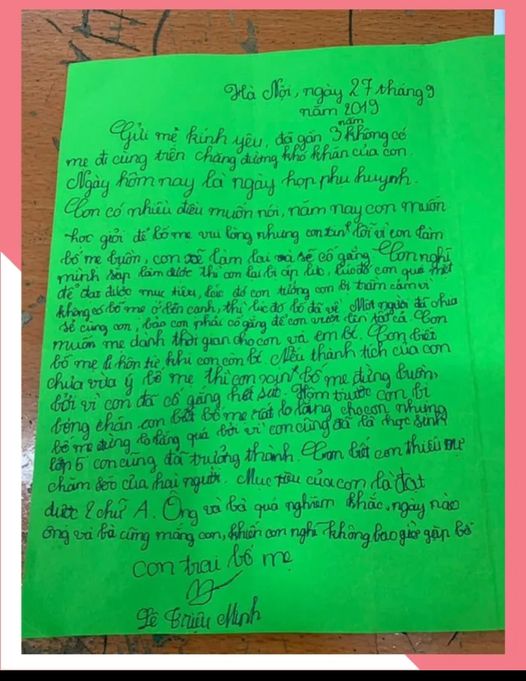 Hà Nội, ngày 27 tháng 9
năm 2019
Gửi mẹ kính yêu, đã gần 3 năm không có
mẹ đi cùng trên chặng đường khó khăn của con.
Ngày hôm nay là ngày họp phu huynh.
Con có nhiều điều muốn nói, năm nay con muốn
học giỏi để bố mẹ vui lòng nhưng con xin lỗi vì con làm
bố mẹ buồn, con sẽ làm lại và sẽ cố gắng. Con nghĩ
mình sắp làm được thì con lại bị áp lực, lúc đó con quá mệt
để đạt được mục tiêu, lúc đó con tưởng con bị trầm cảm vì
không có bố mẹ ở bên cạnh, thì lúc đó bố đã về. Một người đã chia
sẻ cùng con, bảo con phải cố gắng để con vượt lên tất cả. Con
muốn mẹ danh thời gian cho con và em bé. Con biết
bố mẹ li hôn từ khi con còn bé. Nếu thành tích của con
chưa vừa ý bố mẹ thì con xin bố mẹ đừng buồn,
bởi vì con đã cố gắng hết sức. Hôm trước con bị
bỏng chân con biết bố mẹ rất lo lắng cho con nhưng
bố mẹ đừng lo lắng quá bởi vì con cũng đã là học sinh
lớp 5 con cũng đã trưởng thành. Con biết con thiếu sự
chăm sóc của hai người. Mục tiêu của con là đạt
được 2 chữ A. Ông và bà quá nghiêm khắc, ngày nào
ông và bà cũng mắng con, khiến con nghĩ không bao giờ gặp bố
con trai bố mẹ
Lê Triệu Minh